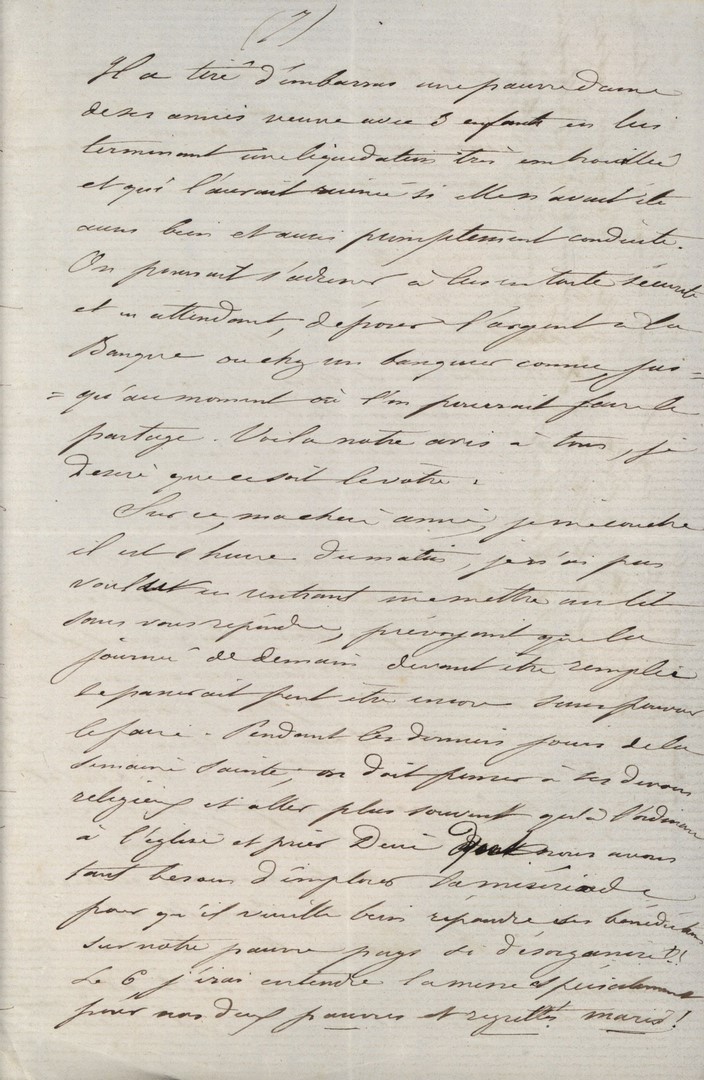 (7)
Il a tiré d'embarras une pauvre dame
de ses amies veuve avec 3 enfants en lui
terminant une liquidation très embrouillée
et qui l'aurait ruinée si elle n'avait été
aussi bien et aussi promptement conduite.
On pourrait s'adresser à lui en toute sécurité
et en attendant, déposer l'argent à la
Banque ou chez un banquier connu, jus=
=qu'au moment où l'on pourrait faire le
partage. Voilà notre avis à tous, je
desire que ce soit le votre.
Sur ce, ma chère amie, je me couche
il est 1 heure du matin, je n'ai pas
voulu en rentrant me mettre au lit
sans vous répondre, prévoyant que la
journée de demain devant être remplie
se passerait peut être encore sans pouvoir
le faire. Pendant les derniers jours de la
semaine sainte, on doit penser à ses devoirs
religieux et aller plus souvent qu'à l'ordinaire
à l'église et prier Dieu nous avons
tant besoin d'implorer sa miséricorde
pour qu'il veuille bien répandre ses bénédictions
sur notre pauvre pays si désorganisé!!
Le 6 j'irai entendre la messe spécialement
pour nos deux pauvres et regrettés maris!